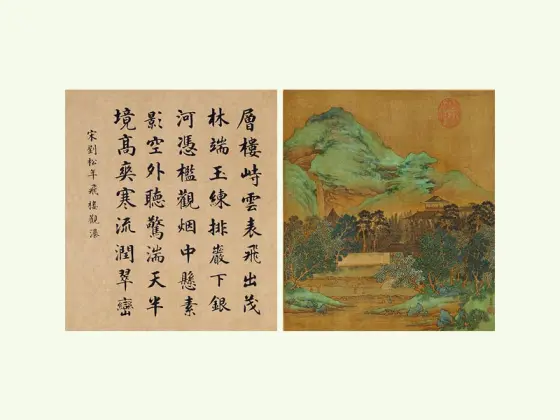 層樓峙雲表飛出茂
林端玉練排巖下銀
河憑檻觀烟中懸素
影空外聽驚湍天半
境高爽寒流潤翠巒
宋劉松年飛樓觀瀑